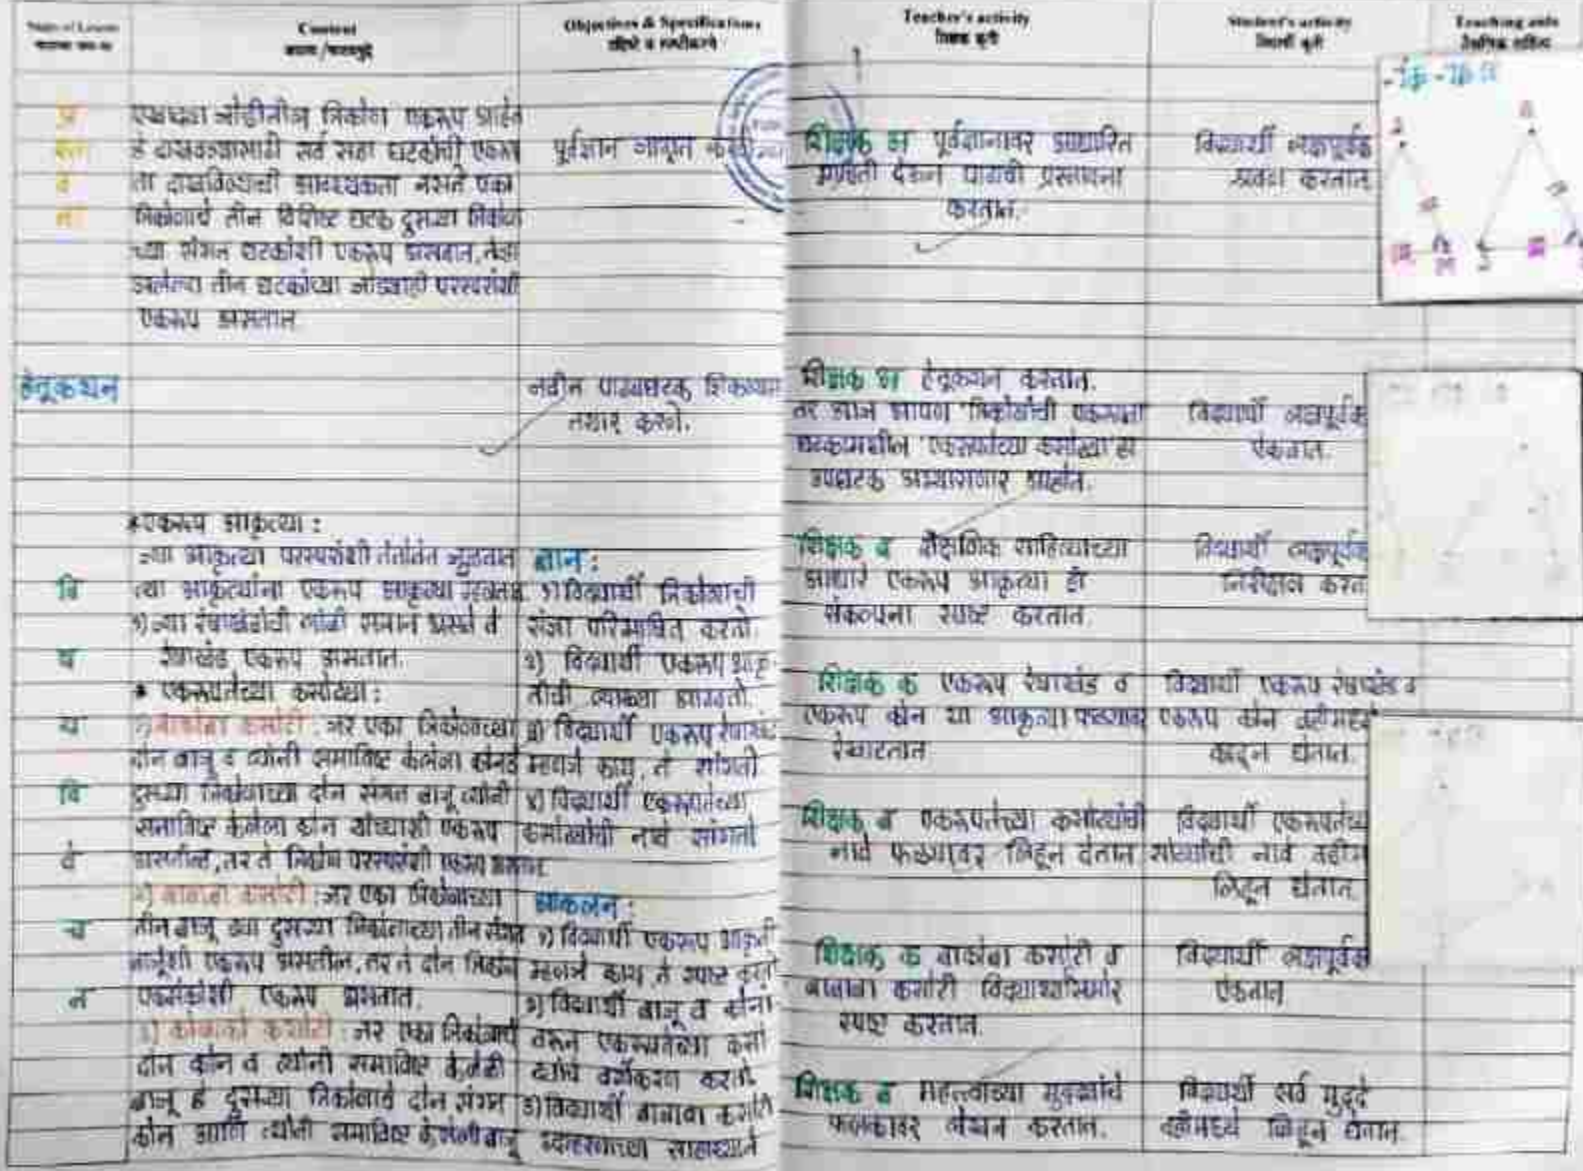 Content
Objectives & Specifications
Teacher's activity
शिक्षक कृती
Student's activity
Teaching aids
एखाद्या जोडीतील त्रिकोण एकरूप आहेत
हे दाखवण्यासाठी सर्व सहा घटकांची एकरू
ता दाखविण्याची आवश्यकता नसते एका
त्रिकोणाचे तीन विशिष्ट घटक दुसऱ्या त्रिकोणा
च्या संगत घटकांशी एकरूप असतात, तेव्हा
उरलेल्या तीन घटकांच्या जोड्याही परस्परांशी
एकरूप असतात
पूर्वज्ञान जागृत
शिक्षक पूर्वज्ञानावर आधारित
माहिती देऊन पाठाची प्रस्तावना
करतात.
विद्यार्थी लक्षपूर्वक
श्रवण करतात
हेतूकथन
नवीन पाठ्यघटक शिकण्यास
तयार करणे.
शिक्षक हेतूकथन करतात.
तर आज आपण 'त्रिकोणांची एकरूपता
घटकामधील 'एकरूपतेच्या कसोट्या' हा
उपघटक अभ्यासणार आहोत.
विद्यार्थी लक्षपूर्वक
ऐकतात.
* एकरूप आकृत्या :
ज्या आकृत्या परस्परांशी तंतोतंत जुळतात
त्या आकृत्यांना एकरूप आकृत्या म्हणतात
१) ज्या रेषाखंडांची लांबी समान असते ते
रेषाखंड एकरूप असतात.
* एकरूपतेच्या कसोट्या :
१) बाकोबा कसोटी : जर एका त्रिकोणाच्या
दोन बाजू व त्यांनी समाविष्ट केलेला कोन हे
दुसऱ्या त्रिकोणाच्या दोन संगत बाजू त्यांनी
समाविष्ट केलेला कोन यांच्याशी एकरूप
असतील, तर ते त्रिकोण परस्परांशी एकरूप असतात
२) बाबाबा कसोटी : जर एका त्रिकोणाच्या
तीन बाजू ह्या दुसऱ्या त्रिकोणाच्या तीन संगत
बाजूंशी एकरूप असतील, तर ते दोन त्रिकोण
एकमेकांशी एकरूप असतात.
३) कोबाको कसोटी : जर एका त्रिकोणाचे
दोन कोन व त्यांनी समाविष्ट केलेली
बाजू हे दुसऱ्या त्रिकोणाचे दोन संगत
कोन आणि त्यांनी समाविष्ट केलेली बाजू
ज्ञान :
१) विद्यार्थी त्रिकोणाची
संज्ञा परिभाषित करतो.
२) विद्यार्थी एकरूप आकृ
तीची व्याख्या आठवतो.
३) विद्यार्थी एकरूप रेषाखंड
म्हणजे काय, ते सांगतो
४) विद्यार्थी एकरूपतेच्या
कसोट्यांची नावे सांगतो
आकलन :
१) विद्यार्थी एकरूप आकृती
म्हणजे काय ते स्पष्ट करतो
२) विद्यार्थी बाजू व कोनां
वरून एकरूपतेच्या कसो
ट्यांचे वर्गीकरण करतो.
३) विद्यार्थी बाबाबा कसोटी
उदाहरणाच्या साहाय्याने
शिक्षक व शैक्षणिक साहित्याच्या
आधारे एकरूप आकृत्या ही
संकल्पना स्पष्ट करतात.
विद्यार्थी लक्षपूर्वक
निरीक्षण करत
शिक्षक क एकरूप रेषाखंड व
एकरूप कोन या आकृत्या फळ्यावर
रेखाटतात
विद्यार्थी एकरूप रेषाखंड व
एकरूप कोन वहीमध्ये
काढून घेतात.
शिक्षक व एकरूपतेच्या कसोट्यांची
नावे फळ्यावर लिहून देतात
विद्यार्थी एकरूपतेच्य
सोट्यांची नावे वहीम
लिहून घेतात.
शिक्षक क बाकोबा कसोटी व
बाबाबा कसोटी विद्यार्थ्यांसमोर
स्पष्ट करतात.
विद्यार्थी लक्षपूर्वक
ऐकतात
शिक्षक व महत्त्वाच्या मुद्द्यांचे
फलकावर लेखन करतात.
विद्यार्थी सर्व मुद्दे
वहीमध्ये लिहून घेतात.